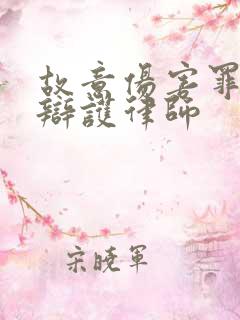 故意傷害罪
辯護律師
宋曉軍